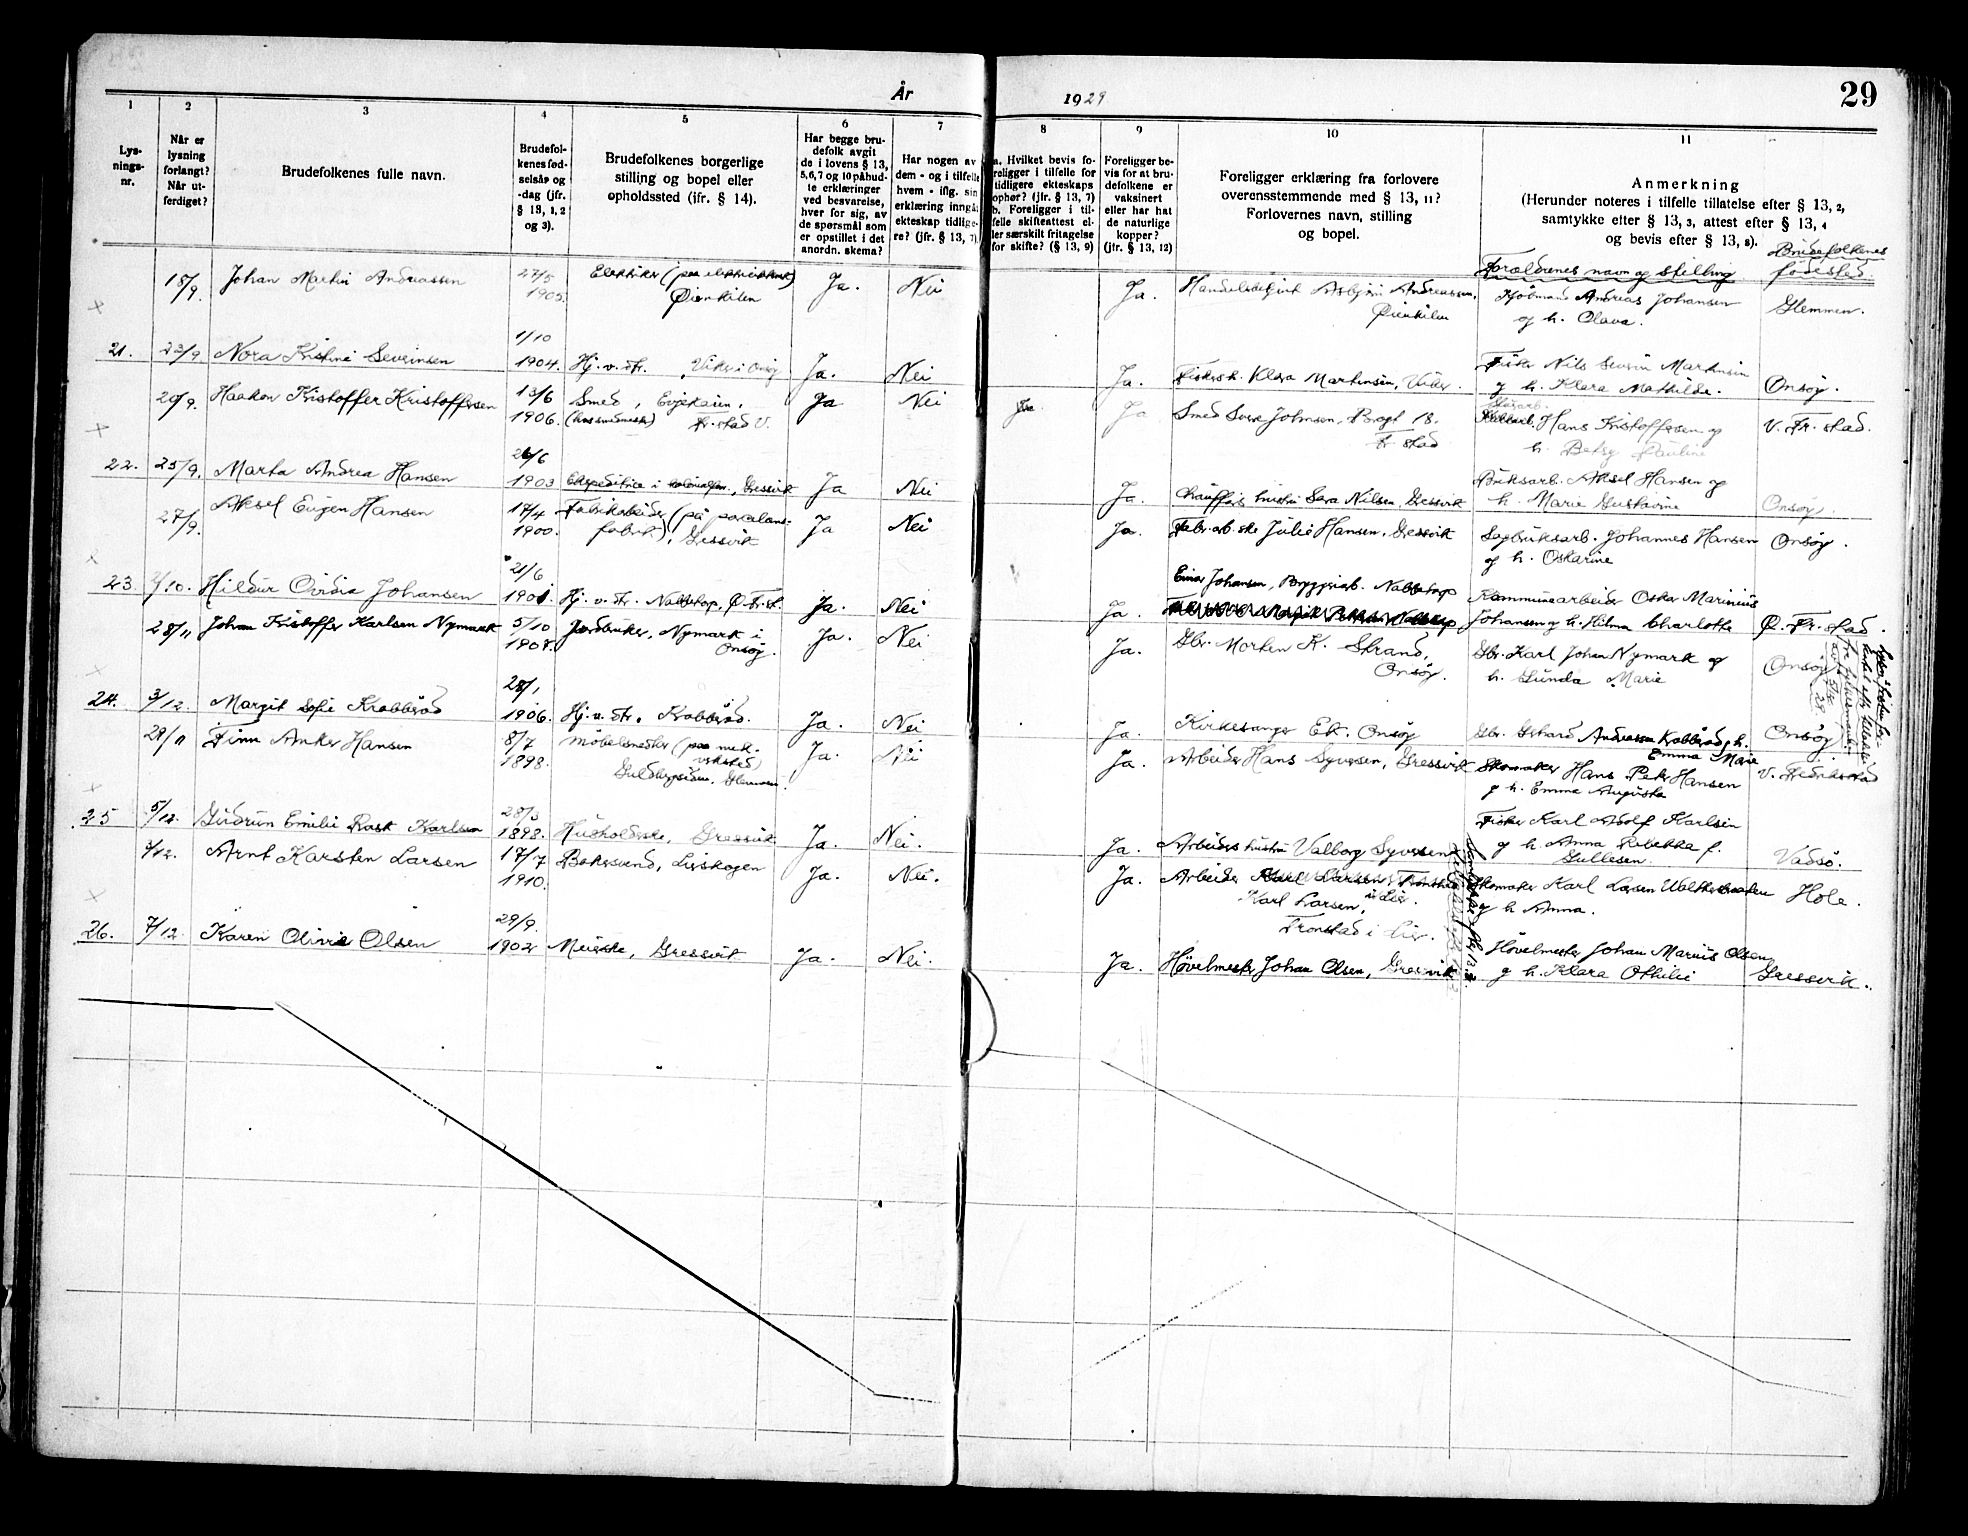 År 1929
29
1 2 3 4 5 6 7 8 9 10 11
Lys-
nings-
nr.
Når er
lysning
forlangt?
Når ut-
ferdiget?
Brudefolkenes fulle navn.
Brudefol-
kenes fød-
selsår og
-dag (jfr.
§ 13, 1, 2
og 3).
Brudefolkenes borgerlige
stilling og bopel eller
opholdssted (ifr. § 14).
Har begge bru-
defolk avgit
de i lovens § 13,
5,6,7 og 10 påbud-
te erklæringer
ved besvarelse,
hver for sig, av
de spørsmål som
er opstillet i det
anordn. skema?
Har nogen av
dem - og i tilfelle
hvem - iflg. sin
erklæring inngåt
ekteskap tidlige-
re? (jfr. § 13, 7)
a. Hvilket bevis fo-
religger i tilfelle for
tidligere ekteskaps
ophør? (jfr. § 13, 7)
b. Foreligger i til-
felle skifteattest el-
ler særskilt fritagelse
for skifte? (§ 13, 9)
Foreligger be-
vis for at bru-
defolkene er
vaksinert
eller har hat
de naturlige
kopper?
(jfr. § 13, 12)
Foreligger erklæring fra forlovere
overensstemmende med § 13, 11?
Forlovernes navn, stilling
og bopel.
Anmerkning
(Herunder noteres i tilfelle tillatelse efter § 13, 2,
samtykke efter § 13, 3, attest efter § 13, 4
og bevis efter § 13, 8).
Forældrenes navn og stilling
Brudefolkenes
fødested.
18/9. Johan Martin Andreassen 27/5 1905. Elektriker Øienkilen Ja. Nei Ja. Asbjørn Andreassen, Øienkilen Kjøbmand Andreas Johansen
og h. Olava. Glemmen.
21. 23/9 Nora Kristine Severinsen 1/10 1904. Hj. v. str. Viker i Onsøy Ja. Nei Ja. Fiskersk. Klara Martinsen, Viker. Fisker Nils Severin Martinsen
og h. Klara Mathilde. Onsøy.
20/9. Haakon Kristoffer Kristoffersen 13/6 1906. Smed, Evjekaien, Fr.stad V. Ja Nei Ja Smed Sverre Johnsen, Fr. stad Hans Kristoffersen og
h. Betsy Pauline V. Fr. stad.
22. 25/9. Marta Andrea Hansen 26/6 1903 Ekspeditrice i kolonialfor., Gressvik Ja Nei Ja. Chaufførs hustru Sara Nilsen, Gressvik Bruksarb. Aksel Hansen og
h. Marie Gustavine Onsøy.
27/9. Aksel Eugen Hansen 17/4 1900. Fabrikarbeider (på porcelans-
fabrik), Gressvik Ja Nei Ja. Fabr. arb. ske Julie Hansen, Gressvik Sagbruksarb. Johannes Hansen
og h. Oskarine Onsøy.
23. 2/10. Hildur Ovidia Johansen 21/6 1901. Hj. v. str. Nabbetorp, Ø. Fr.st. Ja. Nei Ja. Einar Johansen, Bryggeriarb. Nabbetorp Kommunearbeider Oskar Marinius
Johansen og h. Hilma Charlotte Ø. Fr. stad.
28/11 Johan Kristoffer Karlsen Nymark 5/10 1907. Jordbruker, Nymark i
Onsøy. Ja. Nei Ja. Gbr. Morten K. Strand,
Onsøy. Gbr. Karl Johan Nymark og
h. Gunda Marie Onsøy
24. 3/12 Margit Sofie Krabberød 28/1 1906. Hj. v. str. Krabberød. Ja. Nei Ja. Kirkesanger Ek. Onsøy Gbr. Gerhard Andreassen Krabberød og h.
Emma Marie Onsøy
29/11 Finn Anker Hansen 8/7 1898. Møbelsnedker (paa mek.
verksted) Guldbergsiden, Glemmen. Ja. Nei Ja. Arbeider Hans Syversen, Gressvik Skomaker Hans Peter Hansen
og h. Emma Augusta V. Fredrikstad
25 5/12. Gudrun Emilie Rask Karlsen 28/3 1892. Husholderske, Gressvik Ja. Nei. Ja. Arbeiders hustru Valborg Syversen Fisker Karl Adolf Karlsen
og h. Anna Rebekka f.
Gullesen. Vadsø.
Arnt Karsten Larsen 17/7 1910. Bakersvend, Lierskogen Ja. Nei. Ja. Arbeider Karl Larsen,
Tronstad i Lier. Skomaker Karl Larsen
og h Anna. Hole.
26. 7/12 Karen Olivie Olsen 29/9. 1902 Meierske, Gressvik Ja. Nei. Ja. Høvelmester Johan Olsen, Gressvik Høvelmester Johan Marius Olsen
og h. Klara Othilie Gressvik.